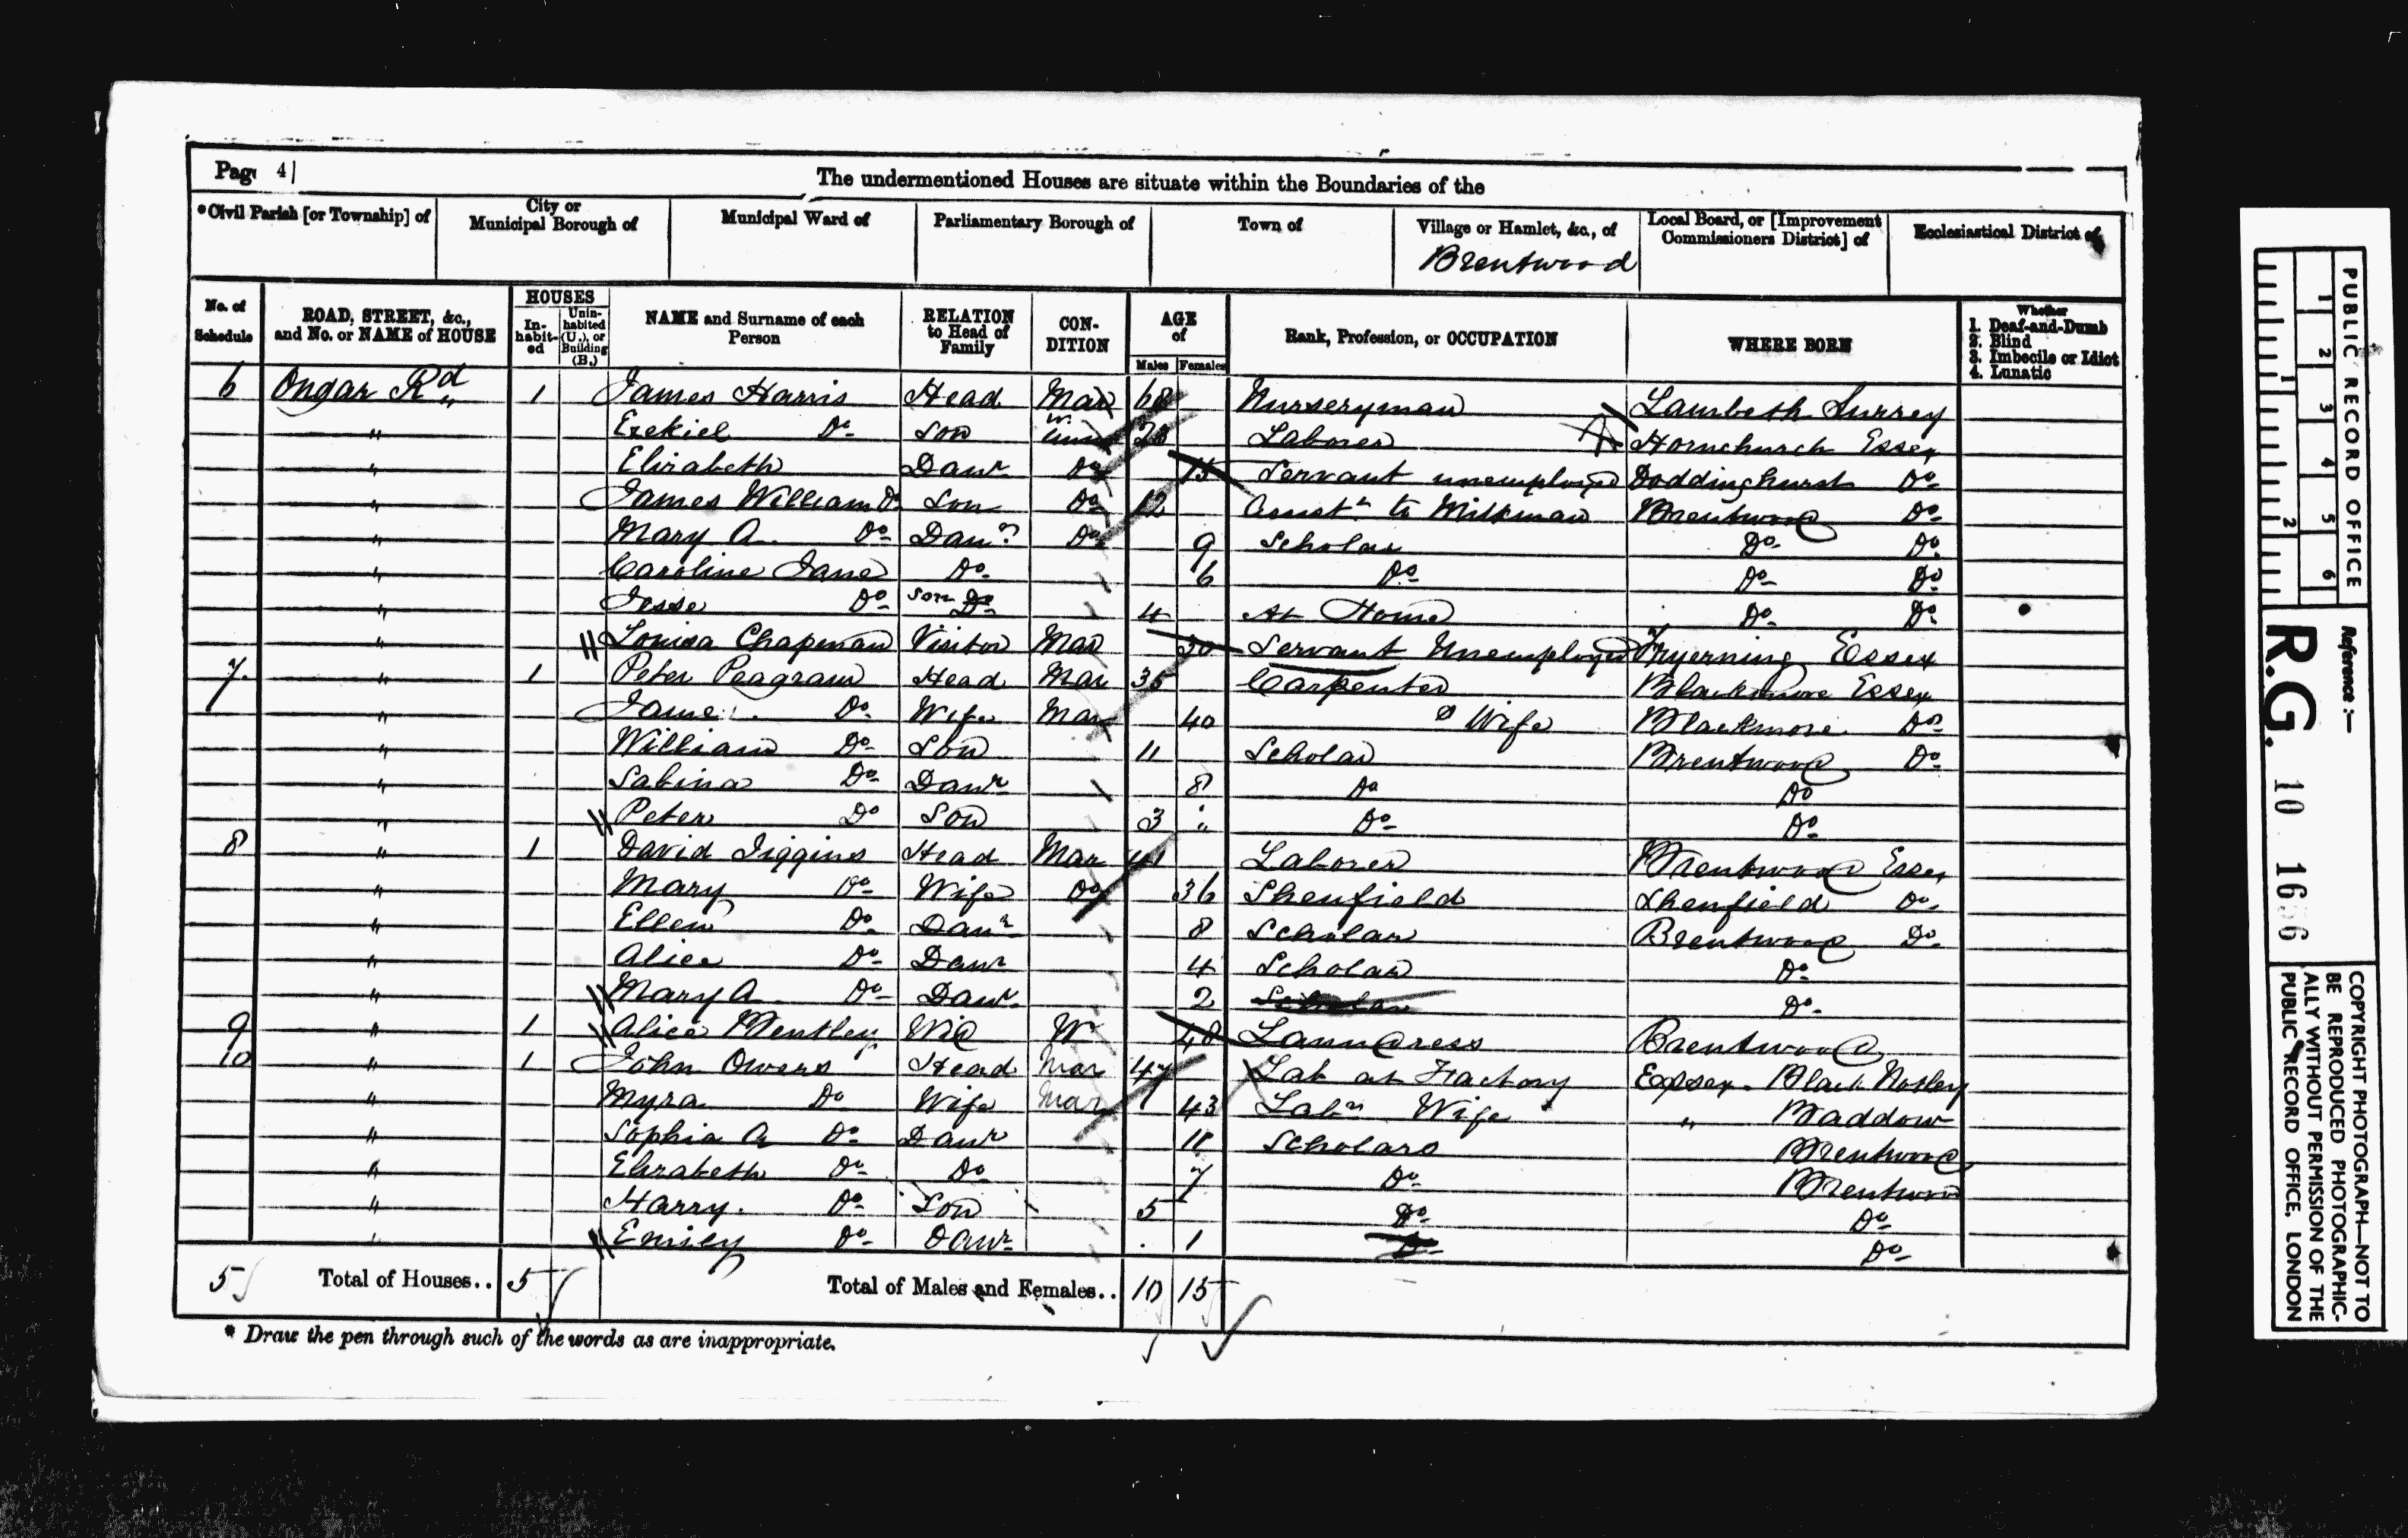 Page 4
The undermentioned Houses are situate within the Boundaries of the
*Civil Parish [or Township] of
City or Municipal Borough of
Municipal Ward of
Parliamentary Borough of
Town of
Village or Hamlet, &c., of
Brentwood
Local Board, or [Improvement Commissioners District] of
Ecclesiastical District of
No. of Schedule
ROAD, STREET, &c., and No. or NAME of HOUSE
HOUSES
In-habit-ed
Unin-habited (U.), or Building (B.)
NAME and Surname of each Person
RELATION to Head of Family
CON-DITION
AGE of
Males Females
Rank, Profession, or OCCUPATION
WHERE BORN
Whether
1. Deaf-and-Dumb
2. Blind
3. Imbecile or Idiot
4. Lunatic
6 Ongar Rd 1 James Harris Head Mar 68 Nurseryman Lambeth Surrey
" Ezekiel Do Son Laborer Hornchurch Essex
" Elizabeth Daur Do 15 Servant unemployed Doddinghurst Do
" James William Do Son Do 12 Assist to Milkman Brentwood Do
" Mary A. Do Daur Do 9 Scholar Do Do
" Caroline Jane Do 6 Do Do Do
" Jesse Do Son Do 4 At Home Do Do
" Louisa Chapman Visitor Mar 30 Servant Unemployed Fryerning Essex
7 " 1 Peter Peagram Head Mar 35 Carpenter Blackmore Essex
" Do Wife Mar 40 Wife Blackmore Do
" William Do Son 11 Scholar Brentwood Do
" Sabina Do Daur 8 Do Do
" Peter Do Son 3 " Do Do
8 " 1 David Jiggins Head Mar 41 Laborer Brentwood Essex
" Mary Do Wife Do 36 Shenfield Shenfield Do
" Ellen Do Daur 8 Scholar Brentwood Do
" Alice Do Daur 4 Scholar Do
" Mary A Do Daur 2 Scholar Do
9 " 1 Alice Bentley Wid W 48 Laundress Brentwood
10 " 1 John Owers Head Mar 47 Lab at Factory Essex Black Notley
" Myra Do Wife Mar 43 Labr Wife " Baddow
" Sophia A Do Daur 11 Scholars Brentwood
" Elizabeth Do Do 7 Do Brentwood
" Harry Do Son 5 Do Do
" Emily Do Daur 1 Do Do
5 Total of Houses.. 5 Total of Males and Females.. 10 15
* Draw the pen through such of the words as are inappropriate.
PUBLIC RECORD OFFICE
1 2 3 4 5 6
1 2
Reference :—
R.G. 10
COPYRIGHT PHOTOGRAPH—NOT TO
BE REPRODUCED PHOTOGRAPHIC-
ALLY WITHOUT PERMISSION OF THE
PUBLIC RECORD OFFICE, LONDON